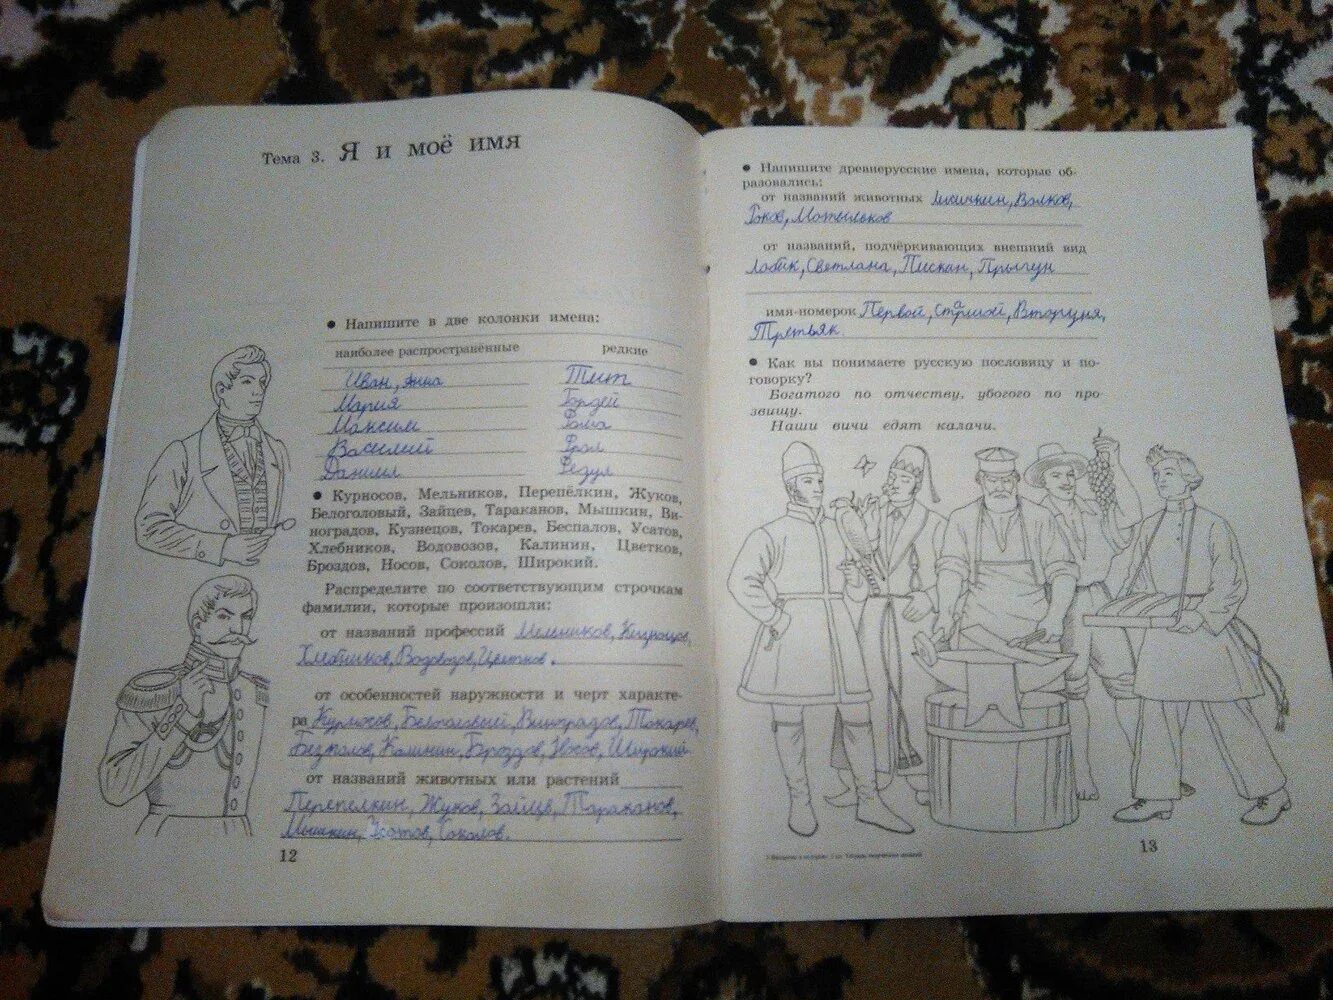 Тема 3. Я и моё имя
• Напишите в две колонки имена:
наиболее распространённые редкие
Иван, Анна Тит
Мария Гордей
Максим Фома
Василий Фрол
Даниил
• Курносов, Мельников, Перепёлкин, Жуков,
Белоголовый, Зайцев, Тараканов, Мышкин, Ви-
ноградов, Кузнецов, Токарев, Беспалов, Усатов,
Хлебников, Водовозов, Калинин, Цветков,
Броздов, Носов, Соколов, Широкий.
Распределите по соответствующим строчкам
фамилии, которые произошли:
от названий профессий Мельников, Кузнецов,
Хлебников, Водовозов, Цветков.
от особенностей наружности и черт характе-
ра Курносов, Белоголовый, Виноградов, Токарев,
Беспалов, Калинин, Броздов, Носов, Широкий.
от названий животных или растений
Перепелкин, Жуков, Зайцев, Тараканов,
Мышкин, Усатов, Соколов.
12
• Напишите древнерусские имена, которые об-
разовались:
от названий животных Лисичкин, Волков,
Мотыльков
от названий, подчёркивающих внешний вид
Лобик, Светлана, Пискан, Прыгун
имя-номерок Первой, Старшой, Вторуня,
Третьяк
• Как вы понимаете русскую пословицу и по-
говорку?
Богатого по отчеству, убогого по про-
звищу.
Наши вичи едят калачи.
13